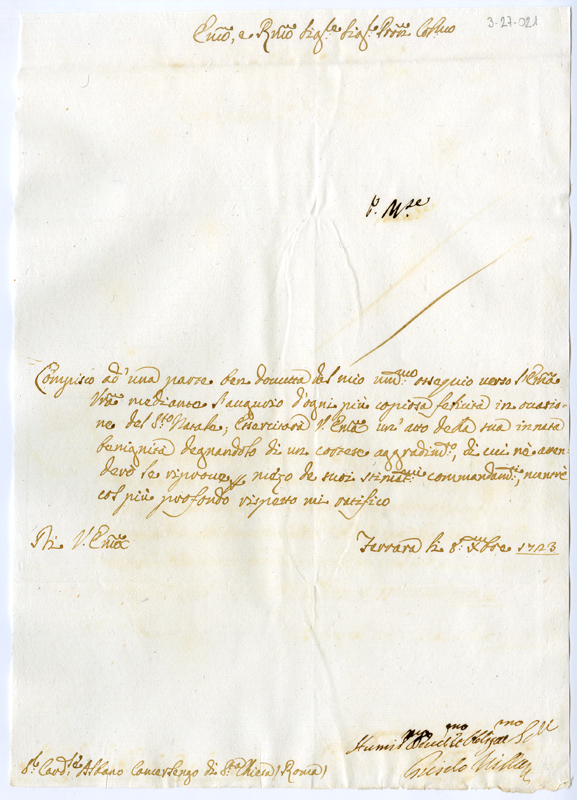 3-27-021
Emõ, e Rmõ Sig.re Sig.r Prõn Col.mo
Compisco ad' una parte ben dovuta del mio um.mo ossequio verso l'Emza
Vra mediante l'augurio d'ogni più copiosa felicità in ocasio-
ne del S.to Natale; Eserciterà V. Emza un' atto della sua innata
benignità degnandolo di un cortese aggradim.to, di cui nè atten-
derò le riprove nei suoi stimat.mi commandam.ti, mentre
col più profondo rispetto mi ratifico
Di V. Emza
Ferrara li 8. Xbre 1723
Humil.mo Oblig.mo
S.r Card.le Albano Camerlengo di S.ta Chiesa (Roma)